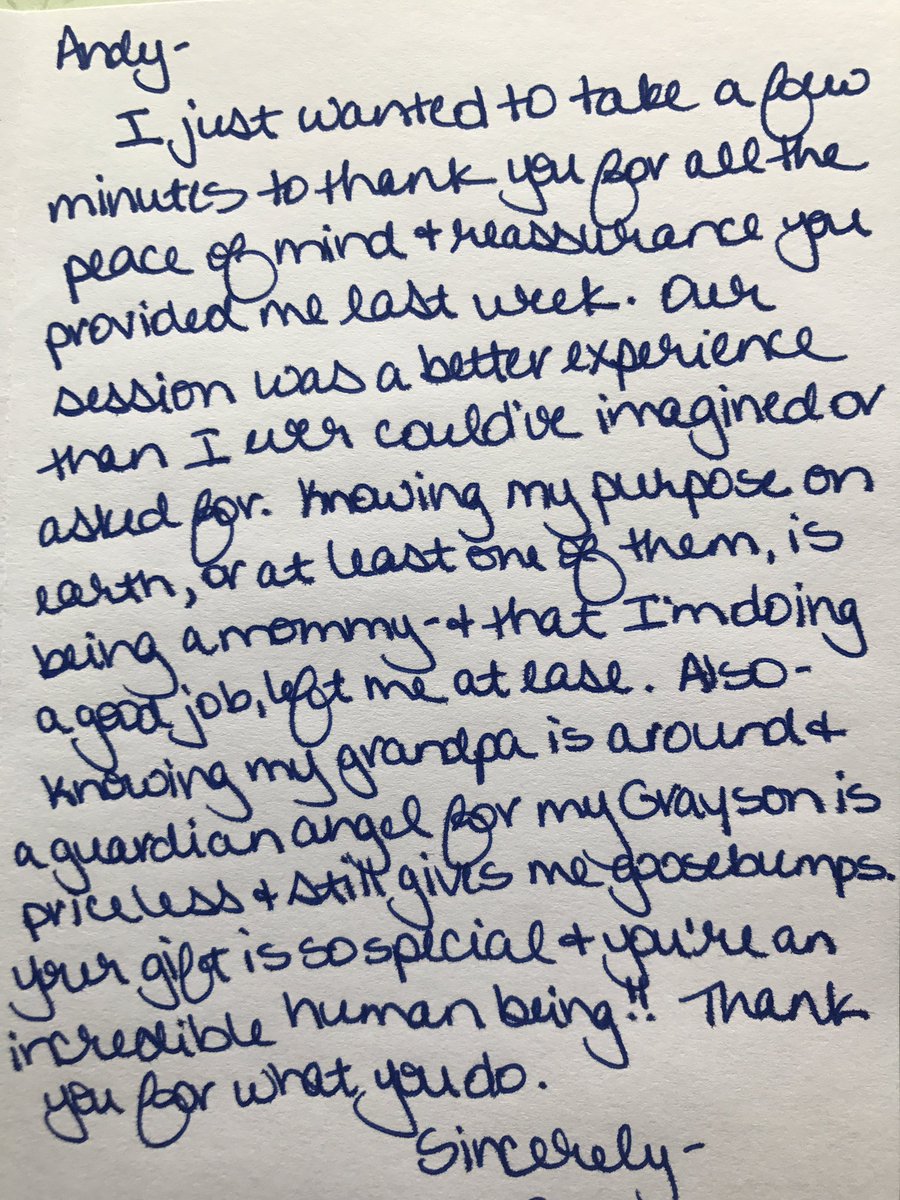 Andy-
I just wanted to take a few
minutes to thank you for all the
peace of mind & reassurance you
provided me last week. Our
session was a better experience
than I ever could've imagined or
asked for. Knowing my purpose on
earth, or at least one of them, is
being a mommy - & that I'm doing
a good job, left me at ease. Also -
knowing my grandpa is around &
a guardian angel for my Grayson is
priceless & still gives me goosebumps.
your gift is so special & you're an
incredible human being!! Thank
you for what you do.
Sincerely -